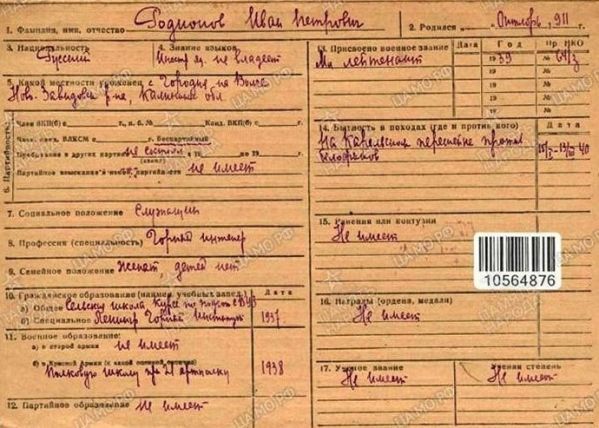 1. Фамилия, имя, отчество Родионов Иван Петрович
2. Родился Октябрь, 911 г.
3. Национальность Русский
4. Знание языков Иностр. яз. не владеет
5. Какой местности уроженец с. Городня, на Волге
Ново-Завидовск. р-на, Калининск. обл.
6. Партийность:
Член ВКП(б) с т. п. б. № Канд. ВКП(б) с
Член, канд. ВЛКСМ с г. Беспартийный
Пребывание в других партиях не состоял с 19 по 19
Партийное взыскание не имеет
7. Социальное положение Служащий
8. Профессия (специальность) Горный инженер
9. Семейное положение женат, детей нет
10. Гражданское образование (наимен. учебных завед.) Дата
а) Общее Сельску школа Курсы по подгот. в ВУЗ
б) Специальное Ленингр. Горный Институт 1937
11. Военное образование:
а) в старой армии не имеет
б) в Красной Армии
Полковую школу при 21 артполку 1938
12. Партийное образование не имеет
13. Присвоено военное звание Дата Год Пр. НКО
Мл лейтенант 19 39 №
19 №
19 №
19 №
14. Бытность в походах (где и против кого) Дата
На Карельском перешейке против
белофинов 40
15. Ранения или контузии
Не имеет
10564876
16. Награды (ордена, медали)
Не имеет
17. Ученое звание Ученая степень
Не имеет Не имеет
ЦАМО.РФ